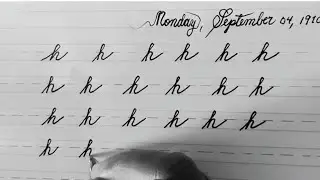 Monday, September 04,
h h h h h h
h h h h h h
h h h h h h
h h